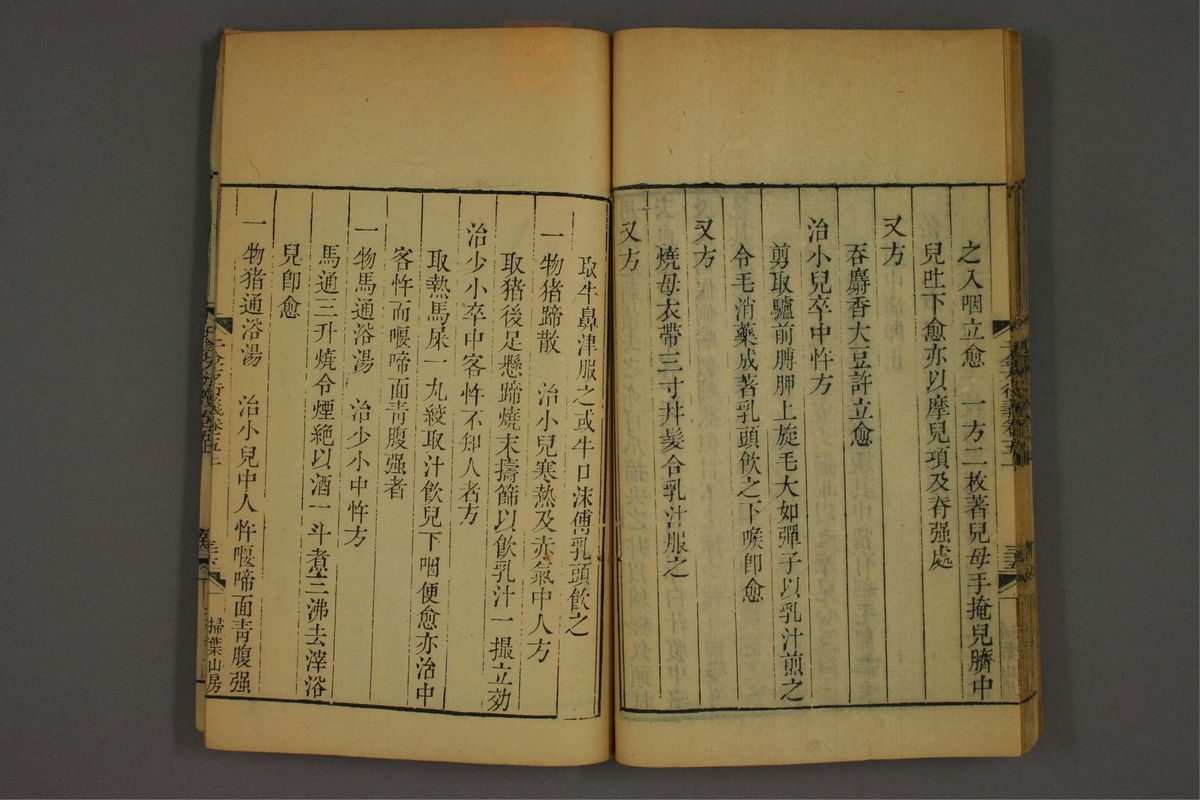 之入咽立愈　一方二枚著兒母手掩兒臍中
兒吐下愈亦以摩兒項及脊强處
又方
吞麝香大豆許立愈
治小兒卒中忤方
剪取驢前膊胛上旋毛大如彈子以乳汁煎之
令毛消藥成著乳頭飮之下喉卽愈
又方
燒母衣帶三寸幷髮合乳汁服之
又方
取牛鼻津服之或牛口沫傅乳頭飮之
一物猪蹄散　治小兒寒熱及赤氣中人方
取猪後足懸蹄燒末擣篩以飮乳汁一撮立効
治少小卒中客忤不知人者方
取熱馬屎一丸絞取汁飮兒下咽便愈亦治中
客忤而偃啼面靑腹强者
一物馬通浴湯　治少小中忤方
馬通三升燒令煙絕以酒一斗煮三沸去滓浴
兒卽愈
一物猪通浴湯　治小兒中人忤偃啼面靑腹强
掃葉山房